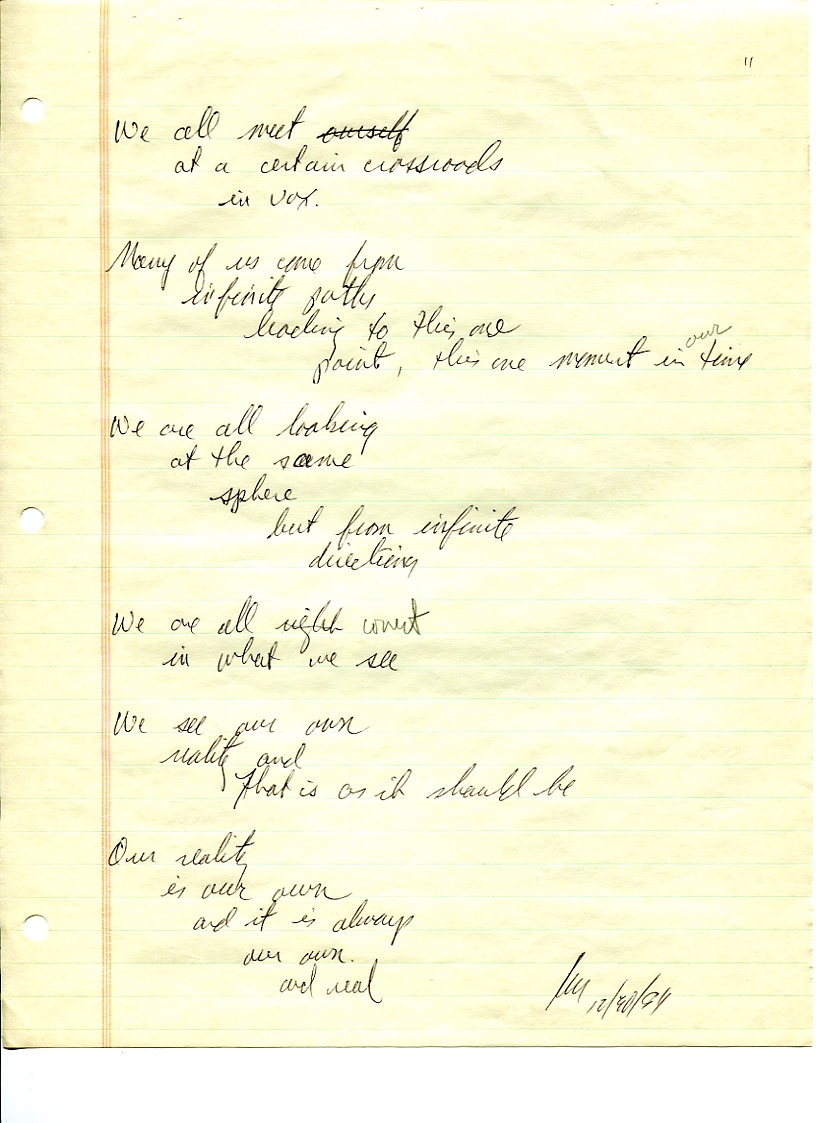 11
We all meet ourself
at a certain crossroads
in vox.
Many of us come from
infinite paths
leading to this one
point, this one moment in our time
We are all looking
at the same
sphere
but from infinite
directions
We are all right correct
in what we see
We see our own
reality and
that is as it should be
Our reality
is our own
and it is always
our own.
and real
12/30/94